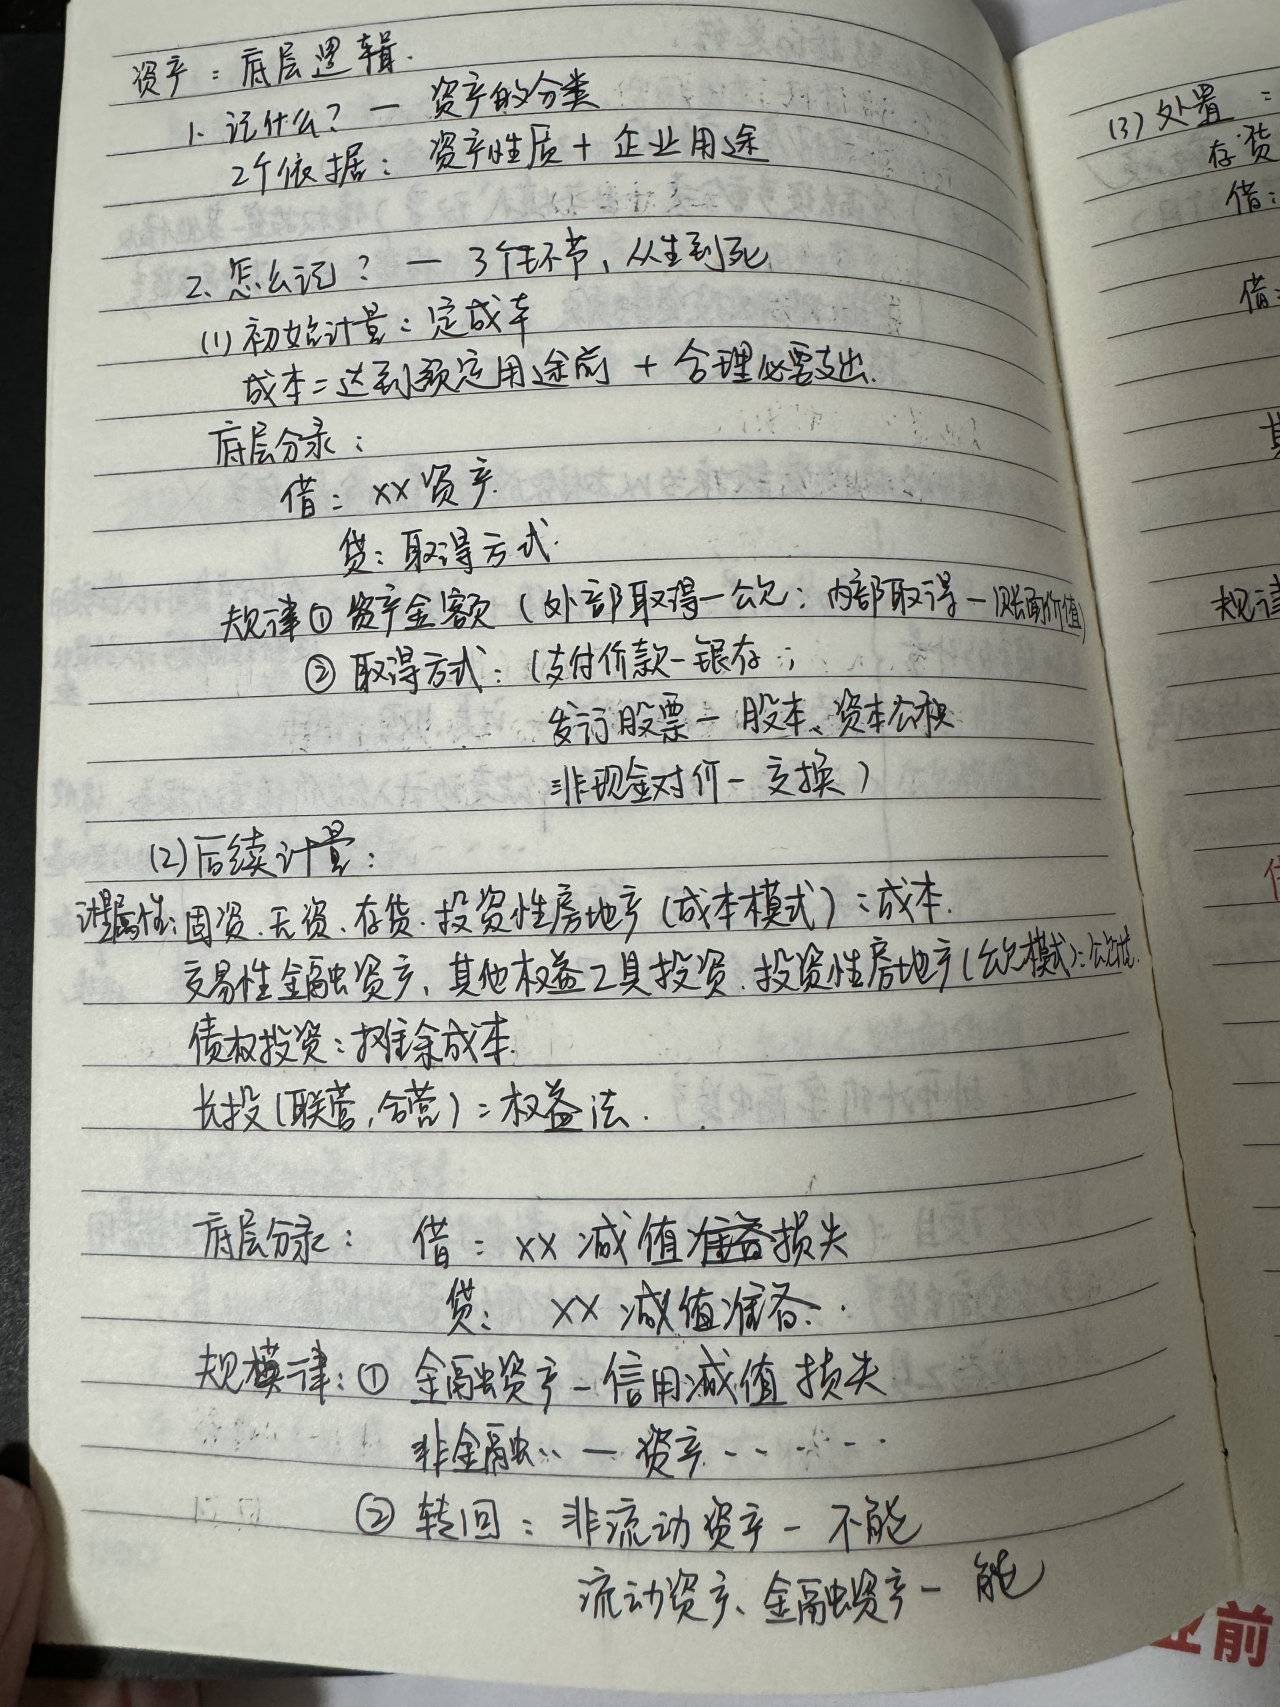 资产：底层逻辑.
1. 记什么？— 资产的分类
2个依据：资产性质 + 企业用途
2. 怎么记？— 3个环节，从生到死
(1) 初始计量：定成本
成本=达到预定用途前 + 合理必要支出.
底层分录：
借：XX资产.
贷：取得方式.
规律① 资产金额（外部取得—公允；内部取得—账面价值）
② 取得方式：（支付价款—银存；
发行股票—股本、资本公积
非现金对价—交换）
(2)后续计量：
计量属性：固资.无资.存货.投资性房地产（成本模式）：成本.
交易性金融资产，其他权益工具投资.投资性房地产(公允模式)：公允价.
债权投资：摊余成本.
长投（联营，合营）：权益法.
底层分录：借：XX减值准备损失
贷：XX减值准备.
规模律：① 金融资产—信用减值损失
非金融‥ — 资产……
② 转回：非流动资产— 不能
流动资产、金融资产— 能
(3) 处置：
存货
借：
借：
其
规律
借
业前